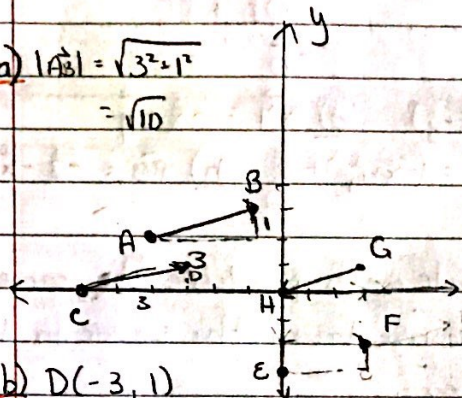 y
a) |AB| = √3²+1²
= √10
B
1
A
3
D
G
C
3
H
F
E
1
b) D(-3, 1)